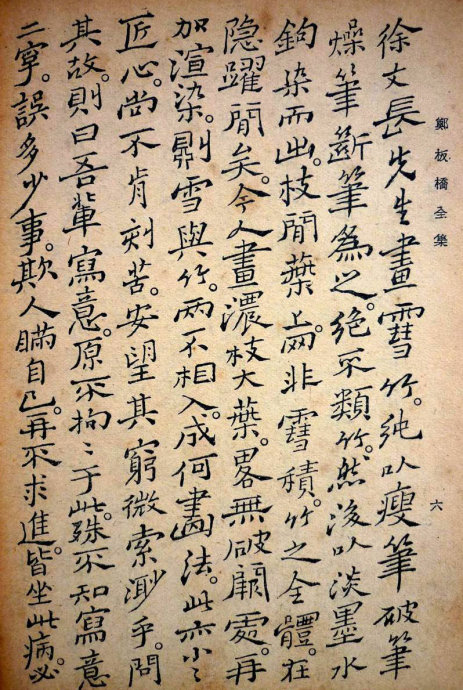 鄭板橋全集
六
徐文長先生畫雪竹。純以瘦筆破筆
燥筆斷筆為之。絕不類竹。然後以淡墨水
鉤染而出。枝間葉上。罔非雪積。竹之全體。在
隱躍間矣。今人畫濃枝大葉。畧無破闕處。再
加渲染。則雪與竹。兩不相入。成何畫法。此亦小〻
匠心。尚不肯刻苦。安望其窮微索渺乎。問
其故。則曰吾輩寫意。原不拘〻于此。殊不知寫意
二字。誤多少事。欺人瞞自己。再不求進。皆坐此病。必